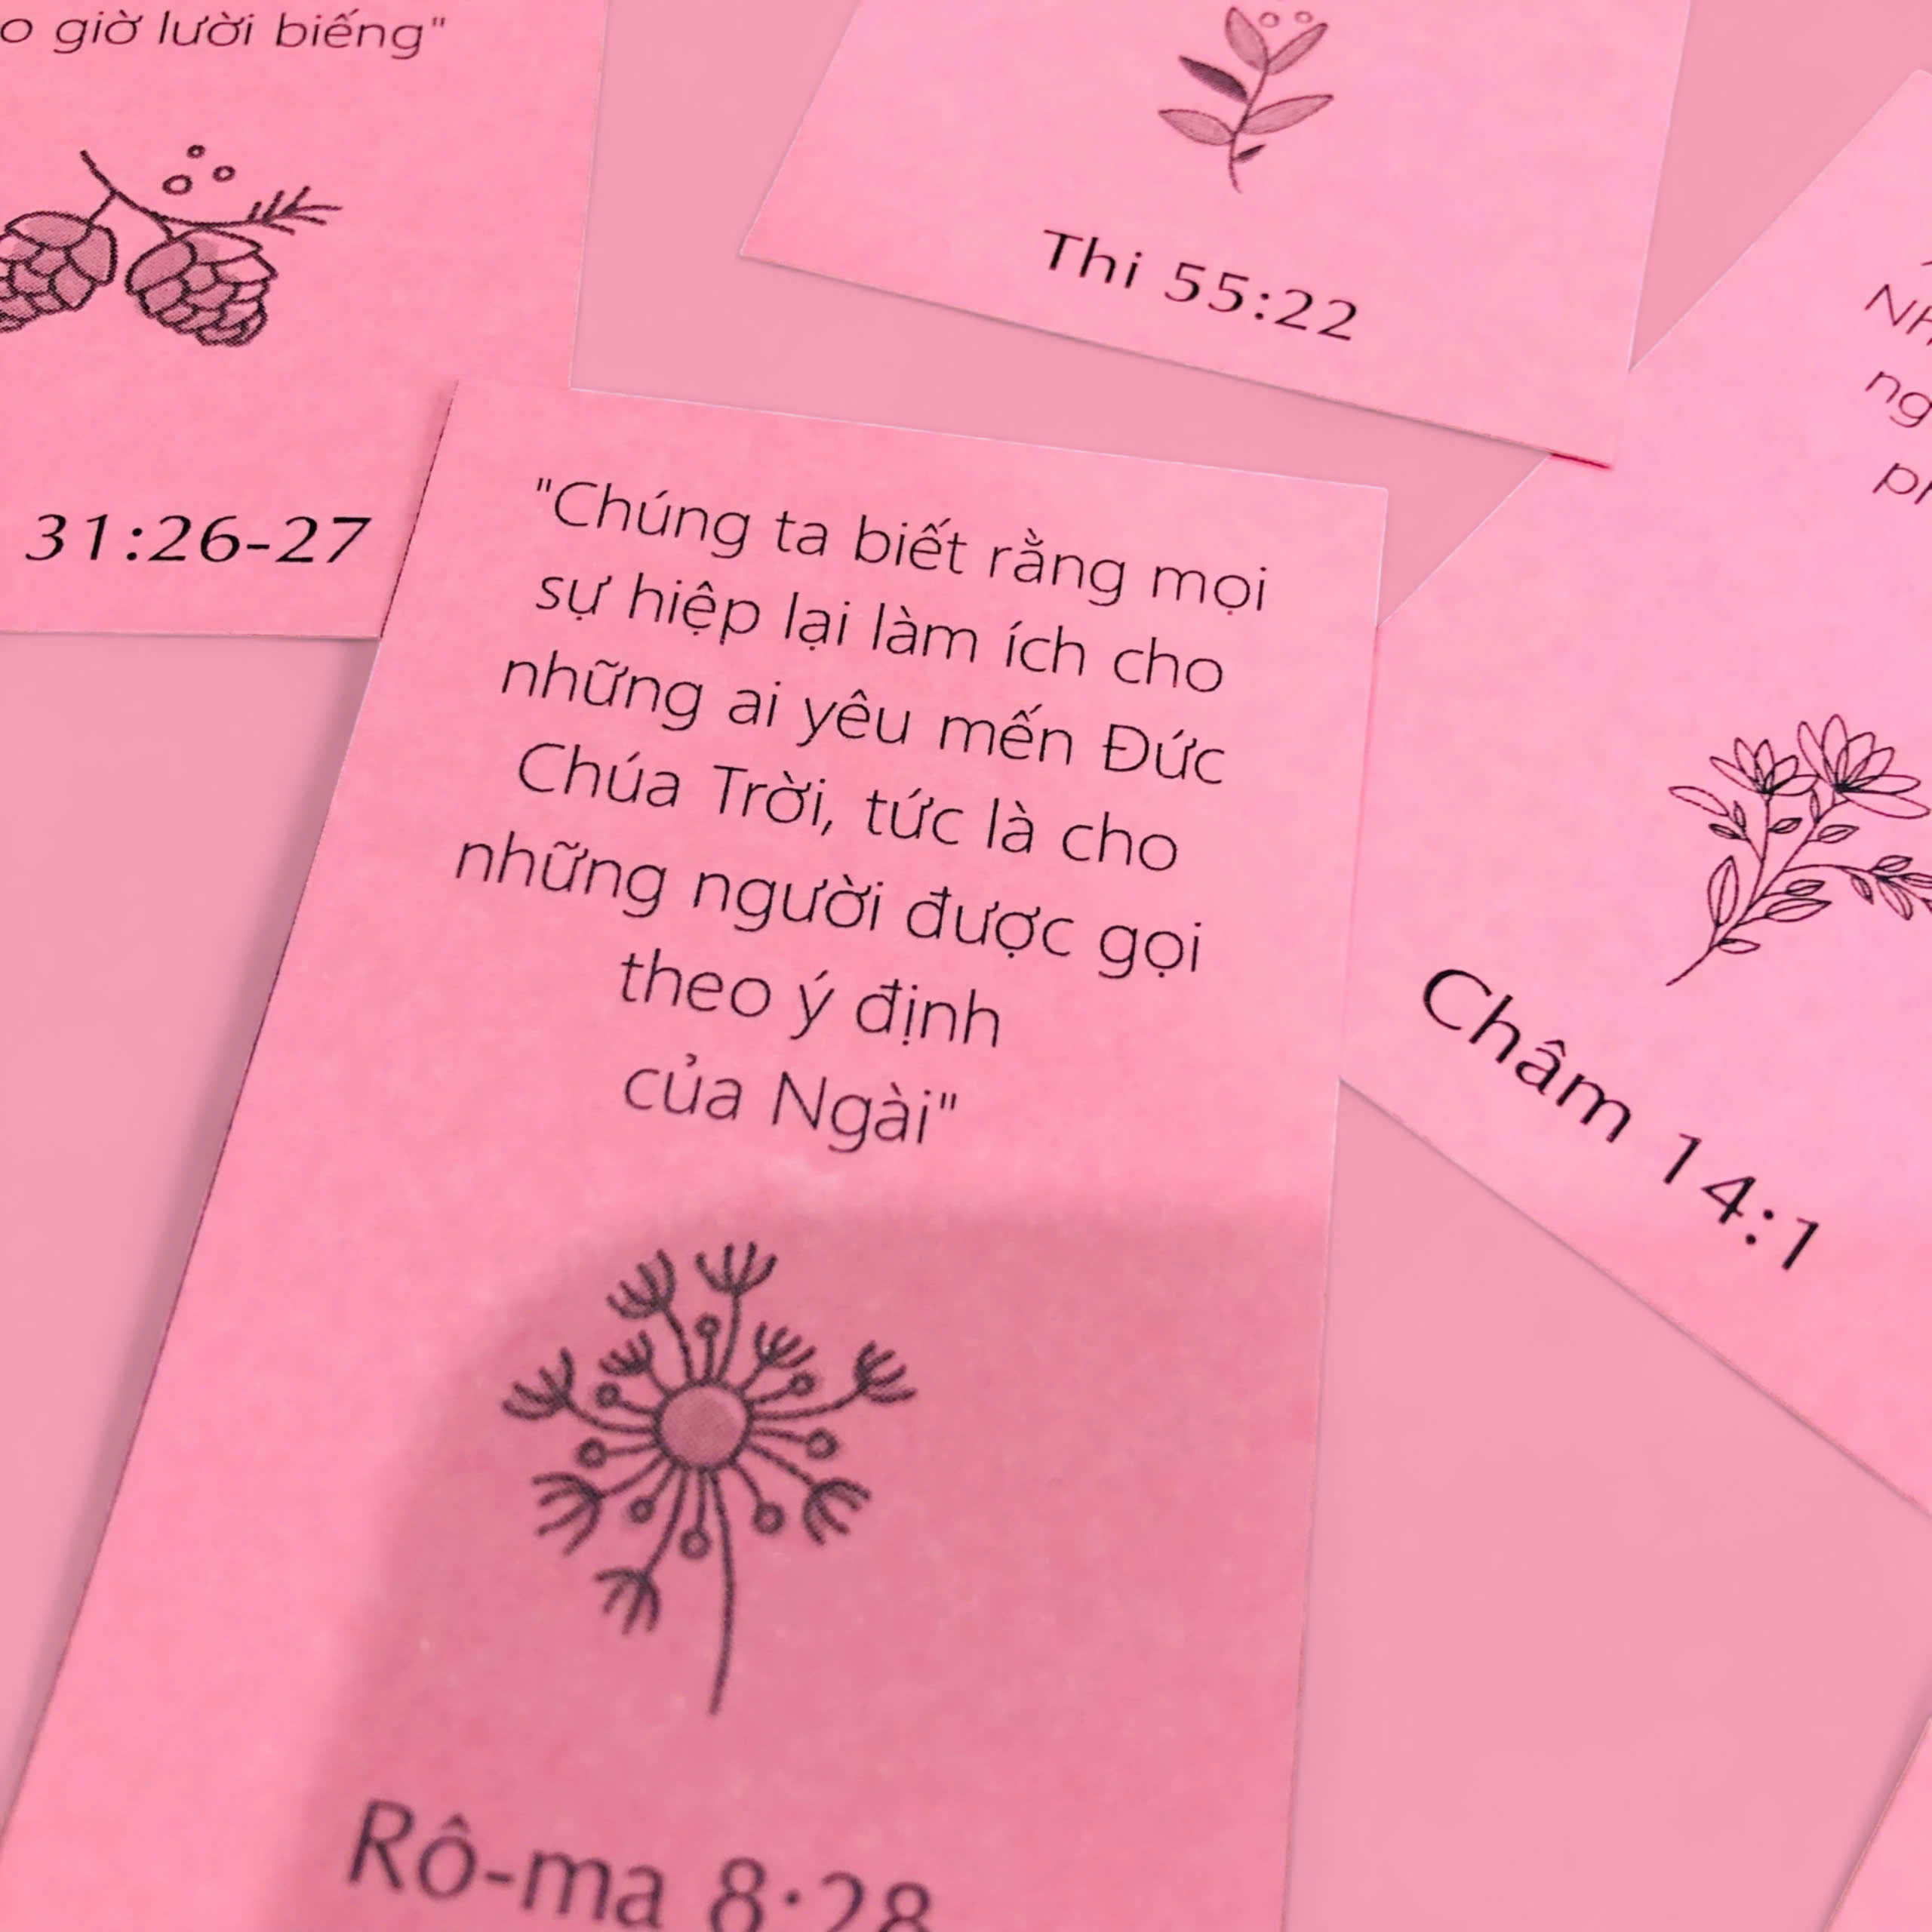 giờ lười biếng"
31:26-27
Thi 55:22
"Chúng ta biết rằng mọi
sự hiệp lại làm ích cho
những ai yêu mến Đức
Chúa Trời, tức là cho
những người được gọi
theo ý định
của Ngài"
Rô-ma 8:28
Châm 14:1